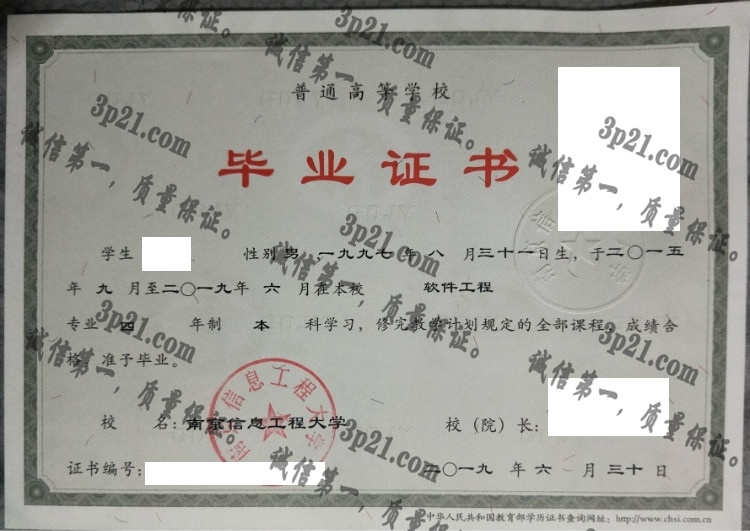 普通高等学校
毕业证书
学生 性别 男 ,一九九七 年 八 月三十一日生，于二〇一五
年 九 月至二〇一九年 六 月在本校 软件工程
专业 四 年制 本 科学习，修完教学计划规定的全部课程，成绩合
格，准予毕业。
校 名：南京信息工程大学
校（院）长：
证书编号：
二〇一九 年 六 月 三十 日
中华人民共和国教育部学历证书查询网址：http://www.chsi.com.cn
南京信息工程大学
3p21.com
诚信第一，质量保证。
3p21.com
诚信第一，质量保证。
3p21.com
诚信第一，质量保证。
3p21.com
诚信第一，质量保证。
3p21.com
诚信第一，质量保证。
3p21.com
诚信第一，质量保证。
3p21.com
诚信第一，质量保证。
诚信第一，质量保证。